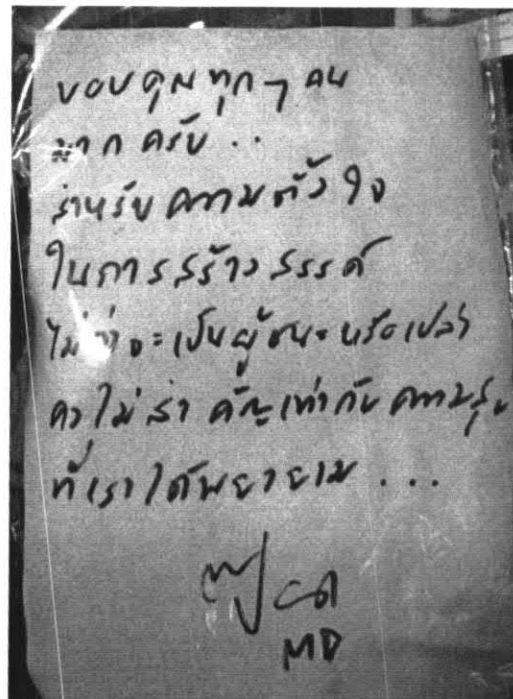 ขอบคุณทุกๆ คน
มาก ครับ ..
สำหรับ ความตั้งใจ
ในการสร้างสรรค์
ไม่ว่าจะเป็นผู้ชนะหรือเปล่า
คงไม่สำคัญเท่ากับความสุข
ที่เราได้พยายาม ...
MD